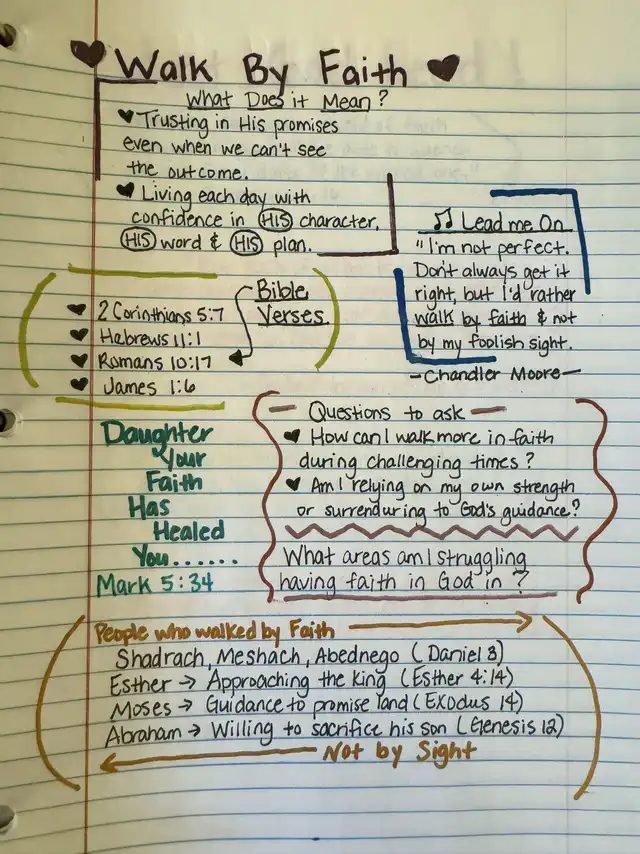 Walk By Faith
What Does it Mean?
Trusting in His promises
even when we can't see
the outcome.
Living each day with
confidence in HIS character,
HIS word & HIS plan.
♫ Lead me On
"I'm not perfect.
Don't always get it
right, but I'd rather
walk by faith & not
by my foolish sight.
-Chandler Moore-
Bible
Verses
2 Corinthians 5:7
Hebrews 11:1
Romans 10:17
James 1:6
Daughter
Your
Faith
Has
Healed
You......
Mark 5:34
- Questions to ask -
How can I walk more in faith
during challenging times?
Am I relying on my own strength
or surrenduring to God's guidance?
What areas am I struggling
having faith in God in?
People who walked by Faith
Shadrach, Meshach, Abednego (Daniel 3)
Esther → Approaching the king (Esther 4:14)
Moses → Guidance to promise land (EXodus 14)
Abraham → Willing to sacrifice his son (Genesis 12)
Not by Sight